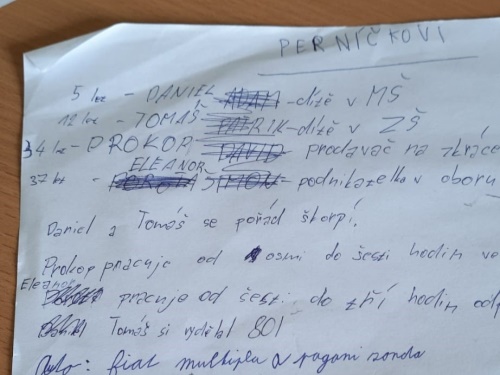 PERNÍČKOVI
5 let - DANIEL ADAM - dítě v MŠ
12 let - TOMÁŠ PATRIK - dítě v ZŠ
34 le - PROKOP DAVID prodavač na zkráce
ELEANOR
37 let - ŠIMON - podnikatelka v oboru
Daniel a Tomáš se pořád škorpí.
Prokop pracuje od osmi do šesti hodin ve
Eleanor
pracuje od šesti do tří hodin odp
Tomáš si vydělal 801
Auto: fiat multipla a pagani zonda